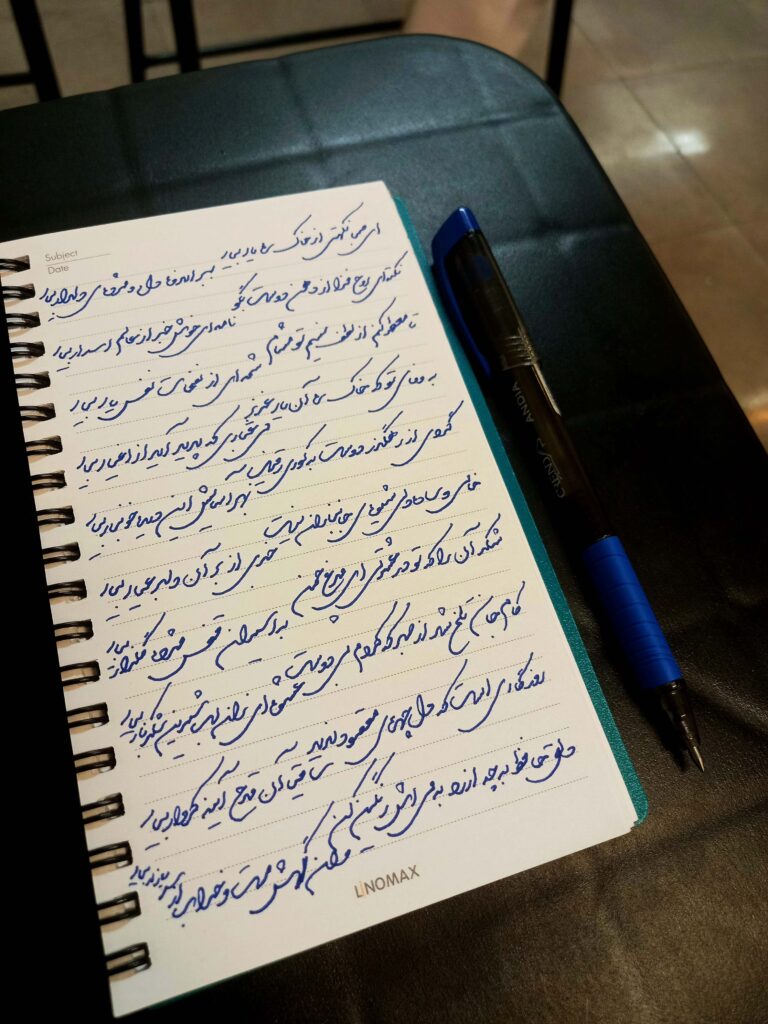 Subject
Date
ای صبا نکهتی از خاک ره یار بیار
ببر اندوه دل و مژده‌ی دلدار بیار
نکته‌ای روح فزا از دهن دوست بگو
نامه‌ای خوش خبر از عالم اسرار بیار
تا معطر کنم از لطف نسیم تو مشام
شمه‌ای از نفحات نفس یار بیار
به وفای تو که خاک ره آن یار عزیز
بی غباری که پدید آید از اغیار بیار
گردی از رهگذر دوست به کوری رقیب
بهر آسایش این دیده خونبار بیار
خامی و ساده دلی شیوه‌ی جانبازان نیست
خبری از بر آن دلبر عیار بیار
شکر آن را که تو در عشرتی ای مرغ چمن
به اسیران قفس مژده گلزار بیار
کام جان تلخ شد از صبر که کردم بی دوست
عشوه‌ای زان لب شیرین شکربار بیار
روزگاری است که دل چهره‌ی مقصود ندید
ساقیا آن قدح آینه کردار بیار
دلق حافظ به چه ارزد به می اش رنگین کن
وان گهش مست و خراب از سر بازار بیار
LINOMAX
ANDIA